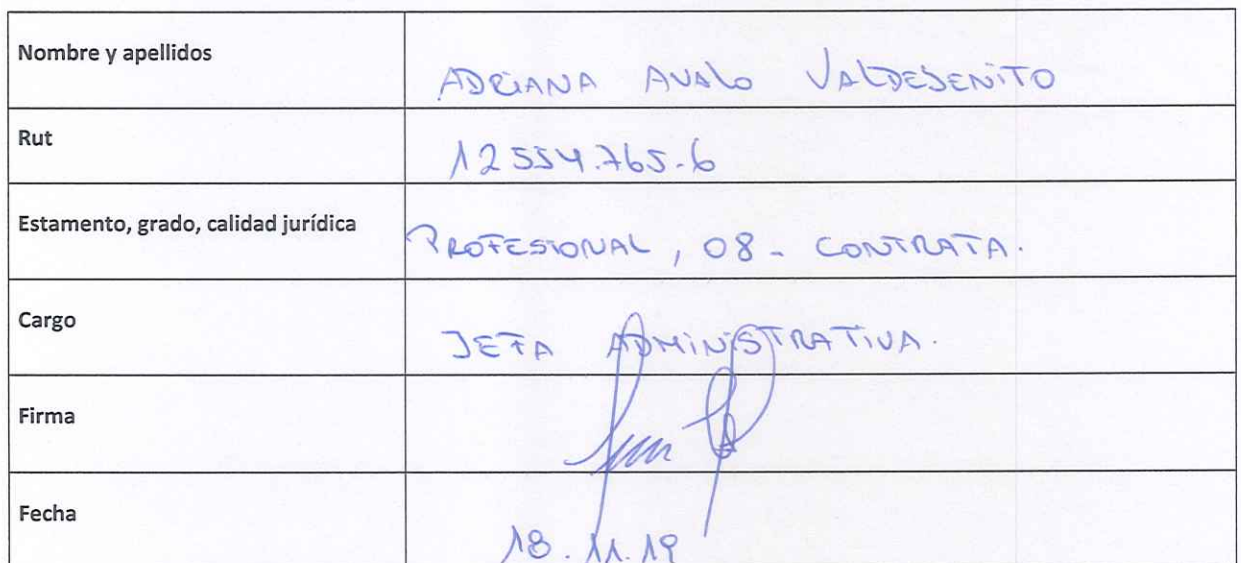 Nombre y apellidos
ADRIANA AVALO VALDEBENITO
Rut
12554.765-6
Estamento, grado, calidad jurídica
PROFESIONAL, 08 - CONTRATA.
Cargo
JEFA ADMINISTRATIVA.
Firma
Fecha
18.11.19